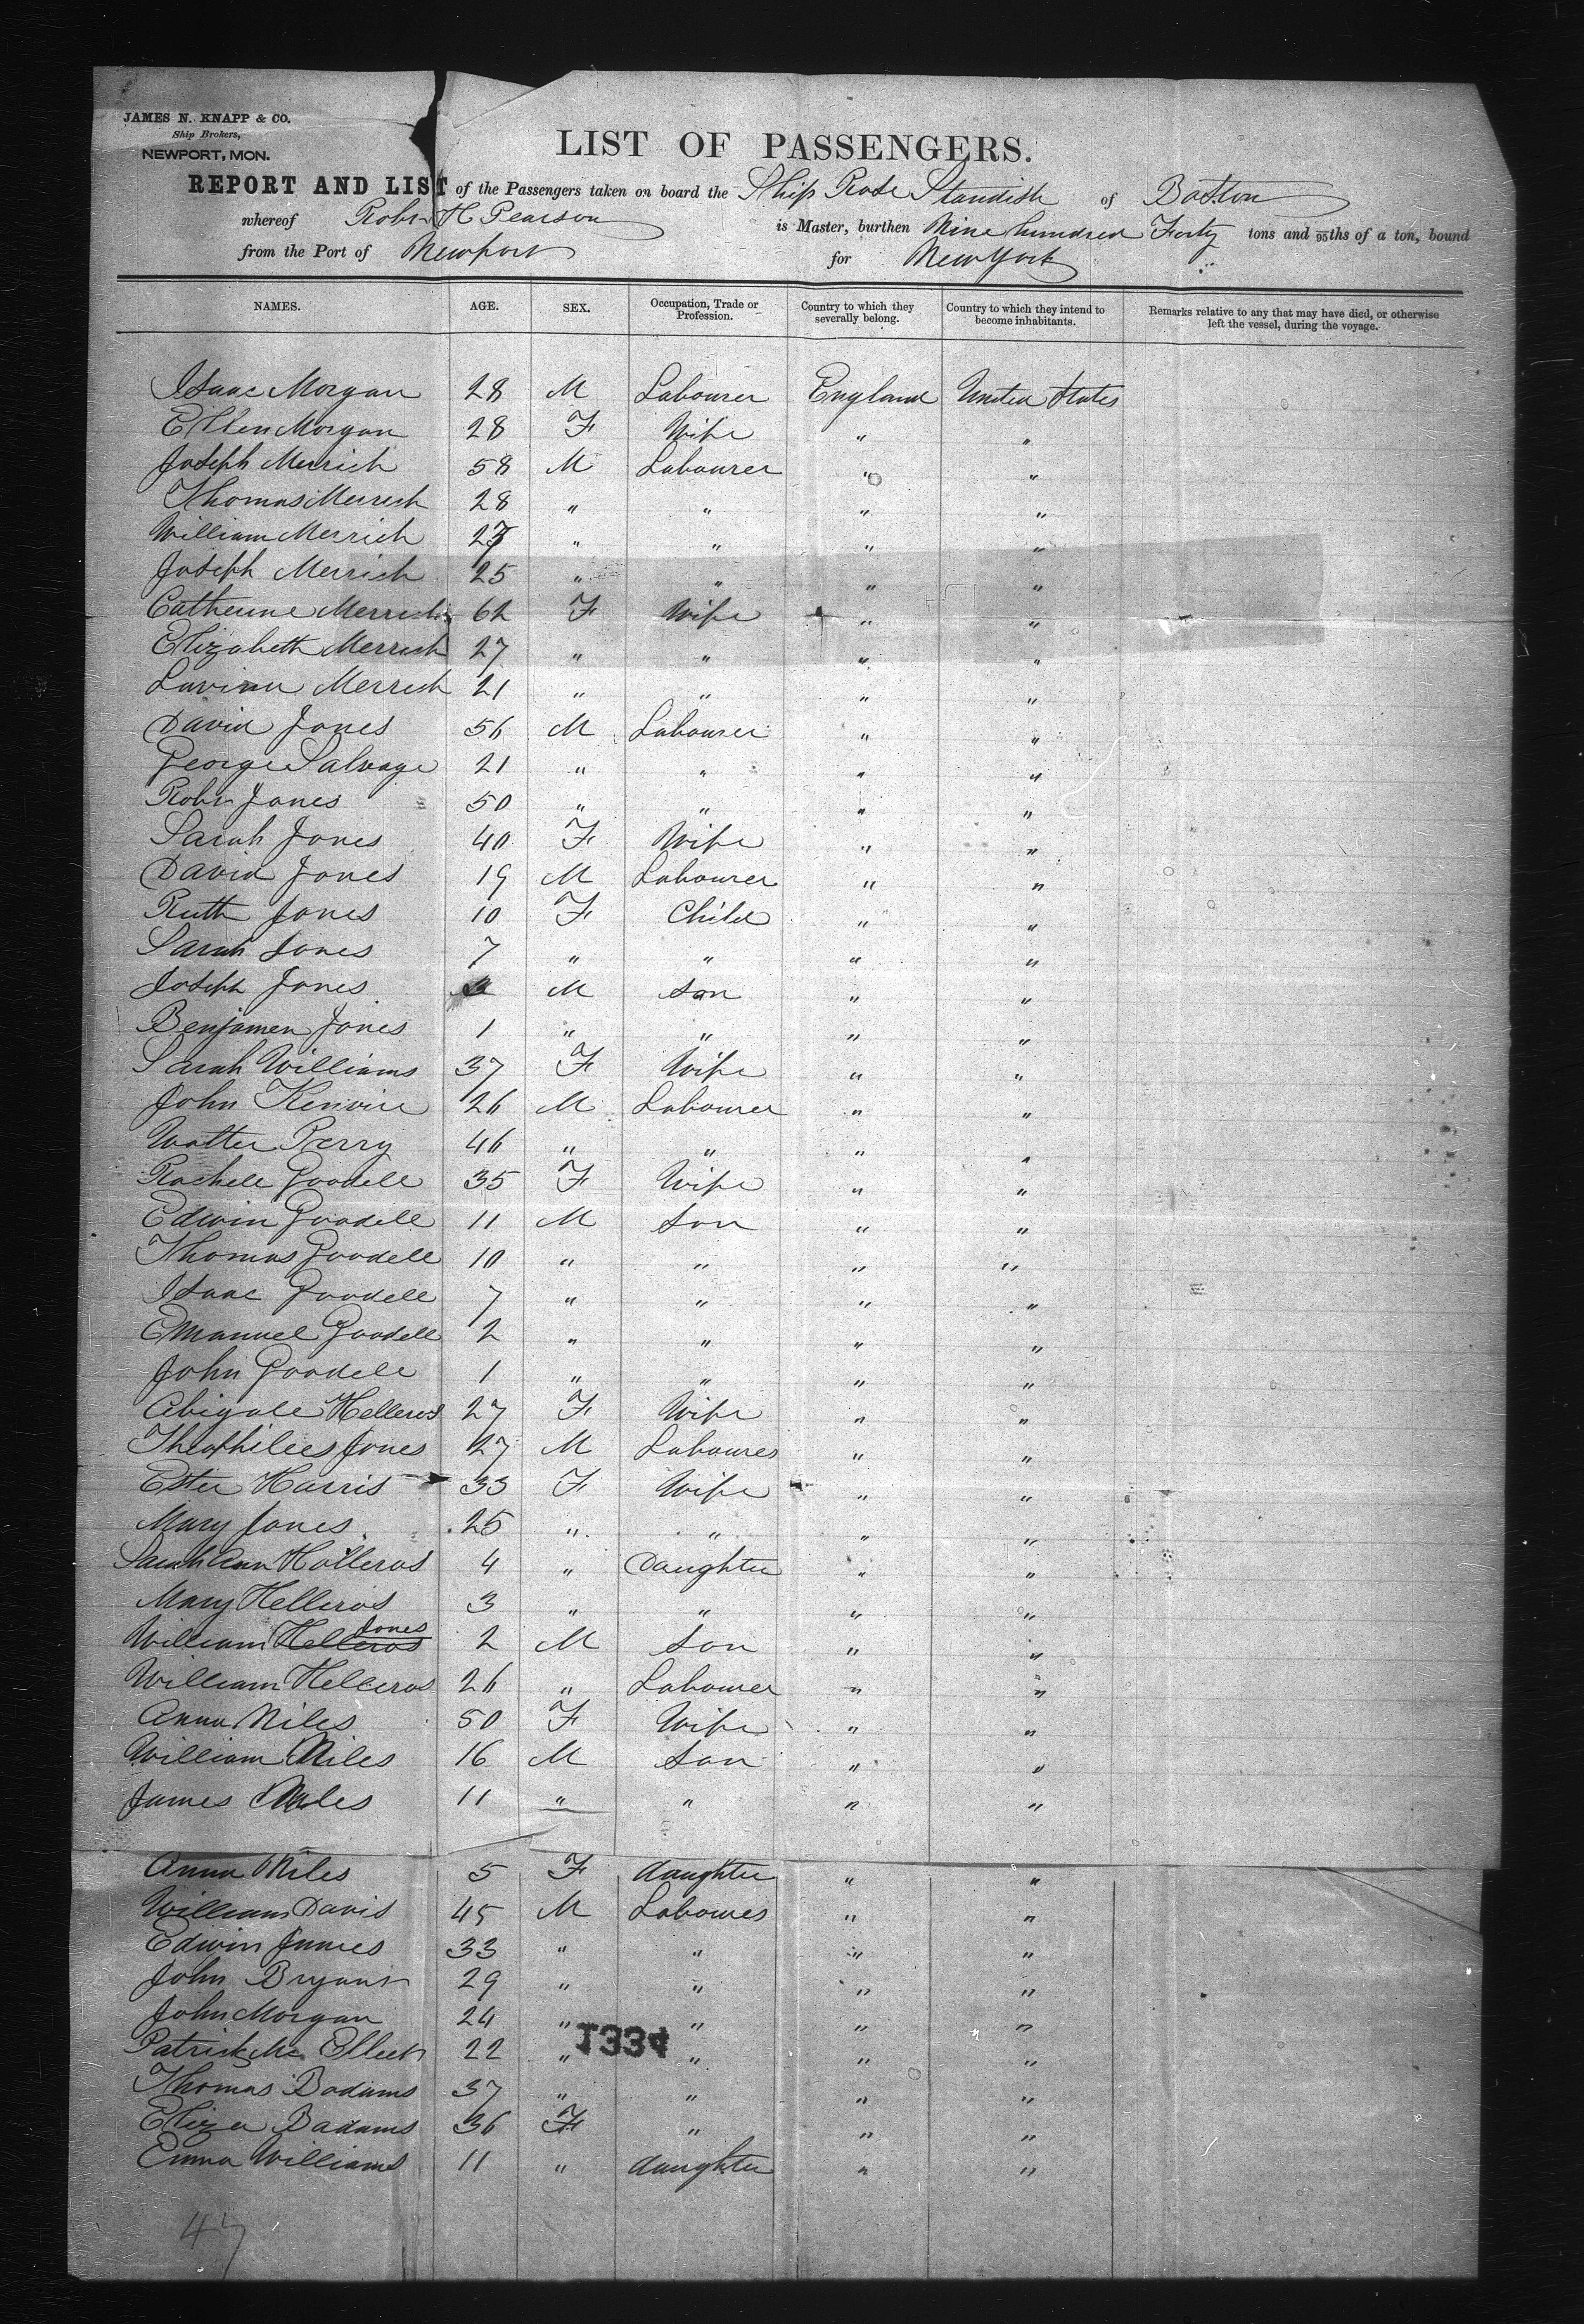 JAMES N. KNAPP & CO.
Ship Brokers,
NEWPORT, MON.
LIST OF PASSENGERS.
REPORT AND LIST of the Passengers taken on board the Ship Rose Standish of Boston
whereof Robt H Pearson is Master, burthen Nine hundred Forty tons and /95ths of a ton, bound
from the Port of Newport for New York
NAMES. AGE. SEX. Occupation, Trade or Profession. Country to which they severally belong. Country to which they intend to become inhabitants. Remarks relative to any that may have died, or otherwise left the vessel, during the voyage.
Isaac Morgan 28 M Labourer England United States
Ellen Morgan 28 F Wife " "
Joseph Merrich 58 M Labourer " "
Thomas Merrich 28 " " " "
William Merrich " " " "
Joseph Merrich 25 " " " "
Catherine Merrich 62 F Wife " "
Elizabeth Merrich 27 " " " "
Lavina Merrich 21 " " " "
David Jones 56 M Labourer " "
George Salvage 21 " " " "
Robt Jones 50 " " " "
Sarah Jones 40 F Wife " "
David Jones 19 M Labourer " "
Ruth Jones 10 F Child " "
Sarah Jones 7 " " " "
Joseph Jones M Son " "
Benjamen Jones 1 " " " "
Sarah Williams 37 F Wife " "
John Kenvire 26 M Labourer " "
Walter Perry 46 " " " "
Rachell Goodell 35 F Wife " "
Edwin Goodell 11 M Son " "
Thomas Goodell 10 " " " "
Isaac Goodell 7 " " " "
Emanuel Goodell 2 " " " "
John Goodell 1 " " " "
Abigale Helleros 27 F Wife " "
Theophilees Jones 27 M Labourer " "
Ester Harris 33 F Wife " "
Mary Jones 25 " " " "
Sarah Ann Holleros 4 " Daughter " "
Mary Helleros 3 " " " "
William Helleros Jones 2 M Son " "
William Helleros 26 " Labourer " "
Anna Niles 50 F Wife " "
William Niles 16 M Son " "
James Niles 11 " " " "
Anna Niles 5 F daughter " "
William Davis 45 M Labourer " "
Edwin James 33 " " " "
John Bryant 29 " " " "
John Morgan 24 " " " "
Patrick Mc 22 " " " "
1334
Thomas Badams 37 " " " "
Eliza Badams 36 F " " "
Emma Williams 11 " daughter " "
47